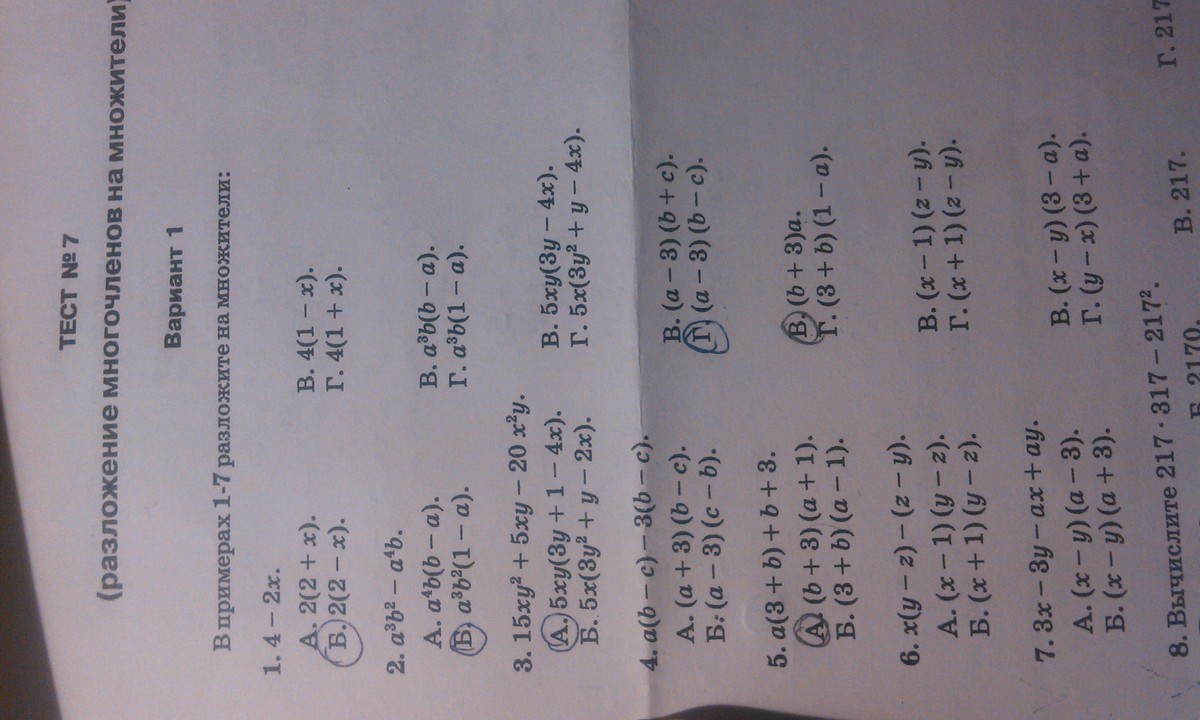 ТЕСТ № 7
(разложение многочленов на множители)
Вариант 1
В примерах 1-7 разложите на множители:
1. 4 – 2x.
А. 2(2 + x). В. 4(1 – x).
Б. 2(2 – x). Г. 4(1 + x).
2. a³b² – a⁴b.
А. a⁴b(b – a). В. a³b(b – a).
Б. a³b²(1 – a). Г. a³b(1 – a).
3. 15xy² + 5xy – 20 x²y.
А. 5xy(3y + 1 – 4x). В. 5xy(3y – 4x).
Б. 5x(3y² + y – 2x). Г. 5x(3y² + y – 4x).
4. a(b – c) – 3(b – c).
А. (a + 3)(b – c). В. (a – 3)(b + c).
Б. (a – 3)(c – b). Г. (a – 3)(b – c).
5. a(3 + b) + b + 3.
А. (b + 3)(a + 1). В. (b + 3)a.
Б. (3 + b)(a – 1). Г. (3 + b)(1 – a).
6. x(y – z) – (z – y).
А. (x – 1)(y – z). В. (x – 1)(z – y).
Б. (x + 1)(y – z). Г. (x + 1)(z – y).
7. 3x – 3y – ax + ay.
А. (x – y)(a – 3). В. (x – y)(3 – a).
Б. (x – y)(a + 3). Г. (y – x)(3 + a).
8. Вычислите 217 · 317 – 217².
Б. 2170. В. 217. Г. 217